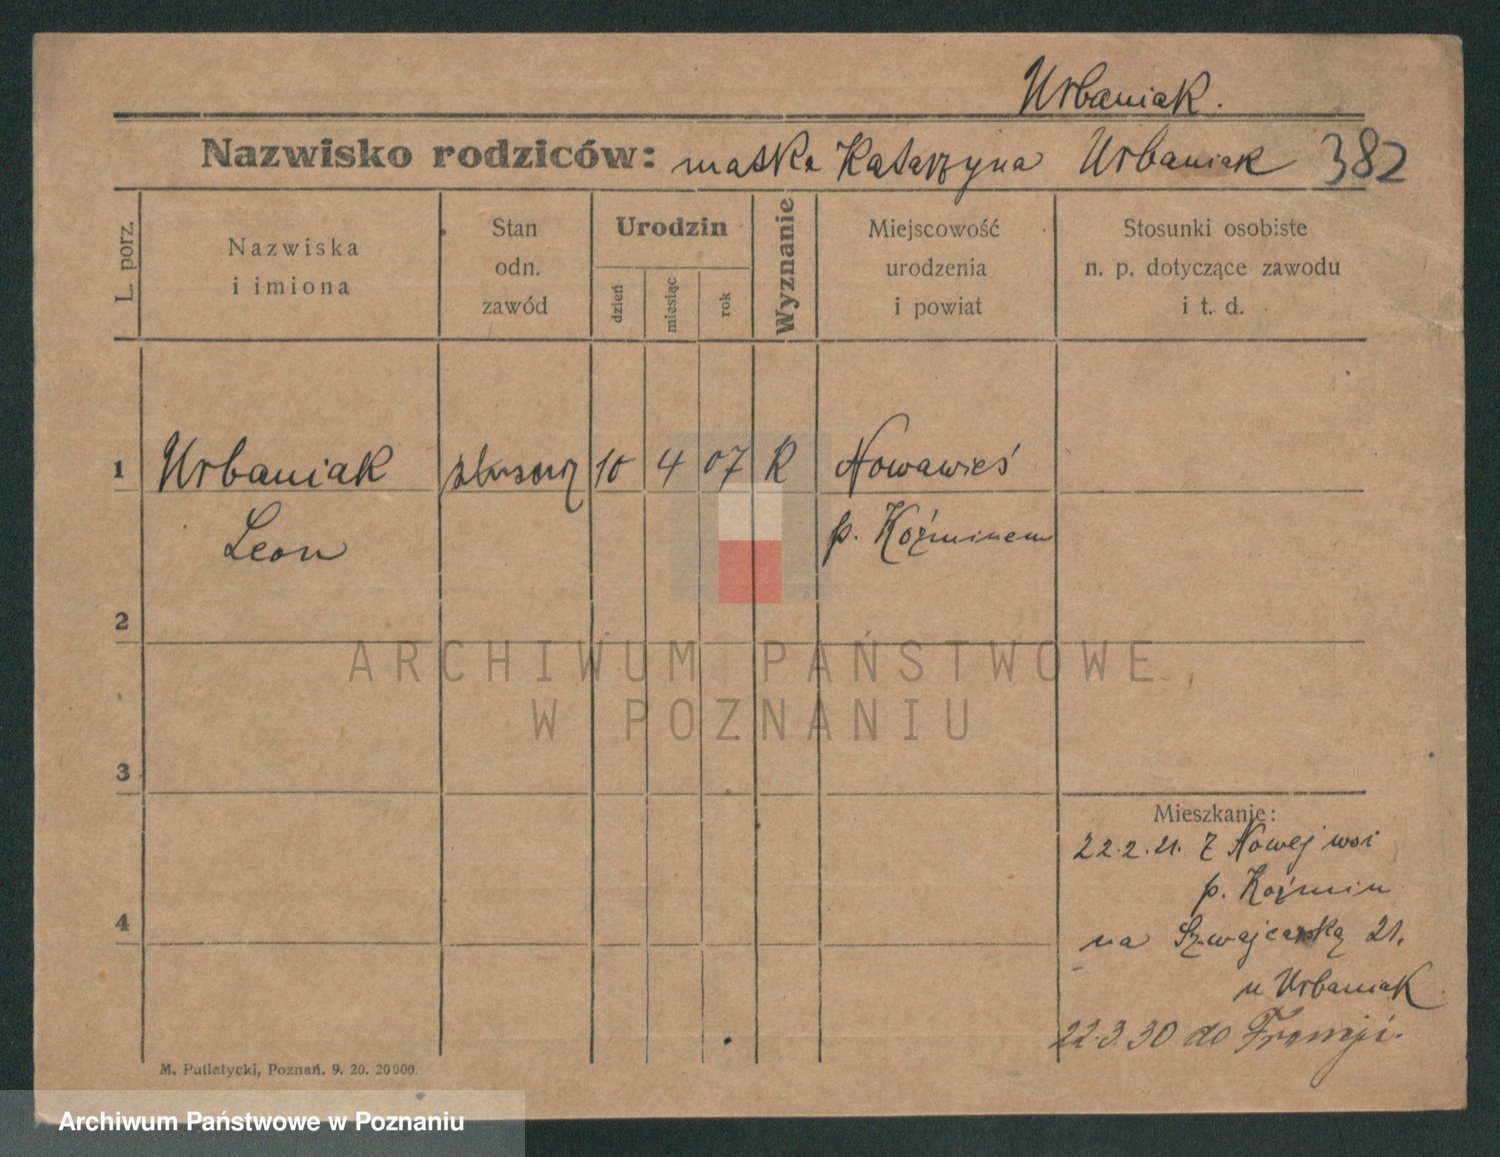 Urbaniak.
Nazwisko rodziców: matka Katarzyna Urbaniak 382
L. porz.
Nazwiska
i imiona
Stan
odn.
zawód
Urodzin
dzień
miesiąc
rok
Wyznanie
Miejscowość
urodzenia
i powiat
Stosunki osobiste
n. p. dotyczące zawodu
i t. d.
1 Urbaniak ślusarz 10 4 07 R Nowawieś
Leon p. Koźminem
2
ARCHIWUM PAŃSTWOWE
W POZNANIU
3
Mieszkanie:
22.2.21. Z Nowej wsi
p. Koźmin
4
na Szwajcarską 21.
u Urbaniak.
22.3.30 do Francji.
M. Putiatycki, Poznań. 9. 20. 20000.
Archiwum Państwowe w Poznaniu